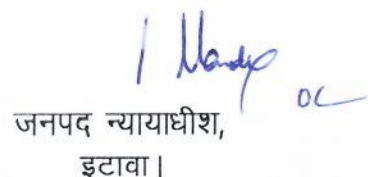 जनपद न्यायाधीश,
इटावा।